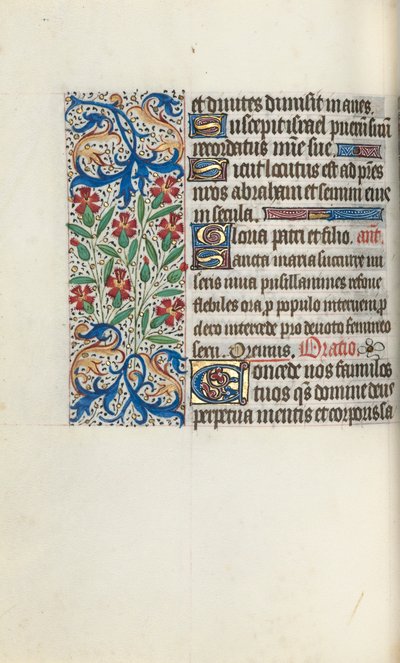 et diuites dimisit inanes
Suscepit israel puerum suum
recordatus mie sue
Sicut locutus est ad pres
nros abraham et semini eius
in secula
Gloria patri et filio. ant.
Sancta maria succurre mi
seris iuua pusillanimes refoue
flebiles ora p populo interueni p
clero intercede pro deuoto femineo
sexu. Oremus. Oratio
Concede nos famulos
tuos qs domine deus
perpetua mentis et corporis sa